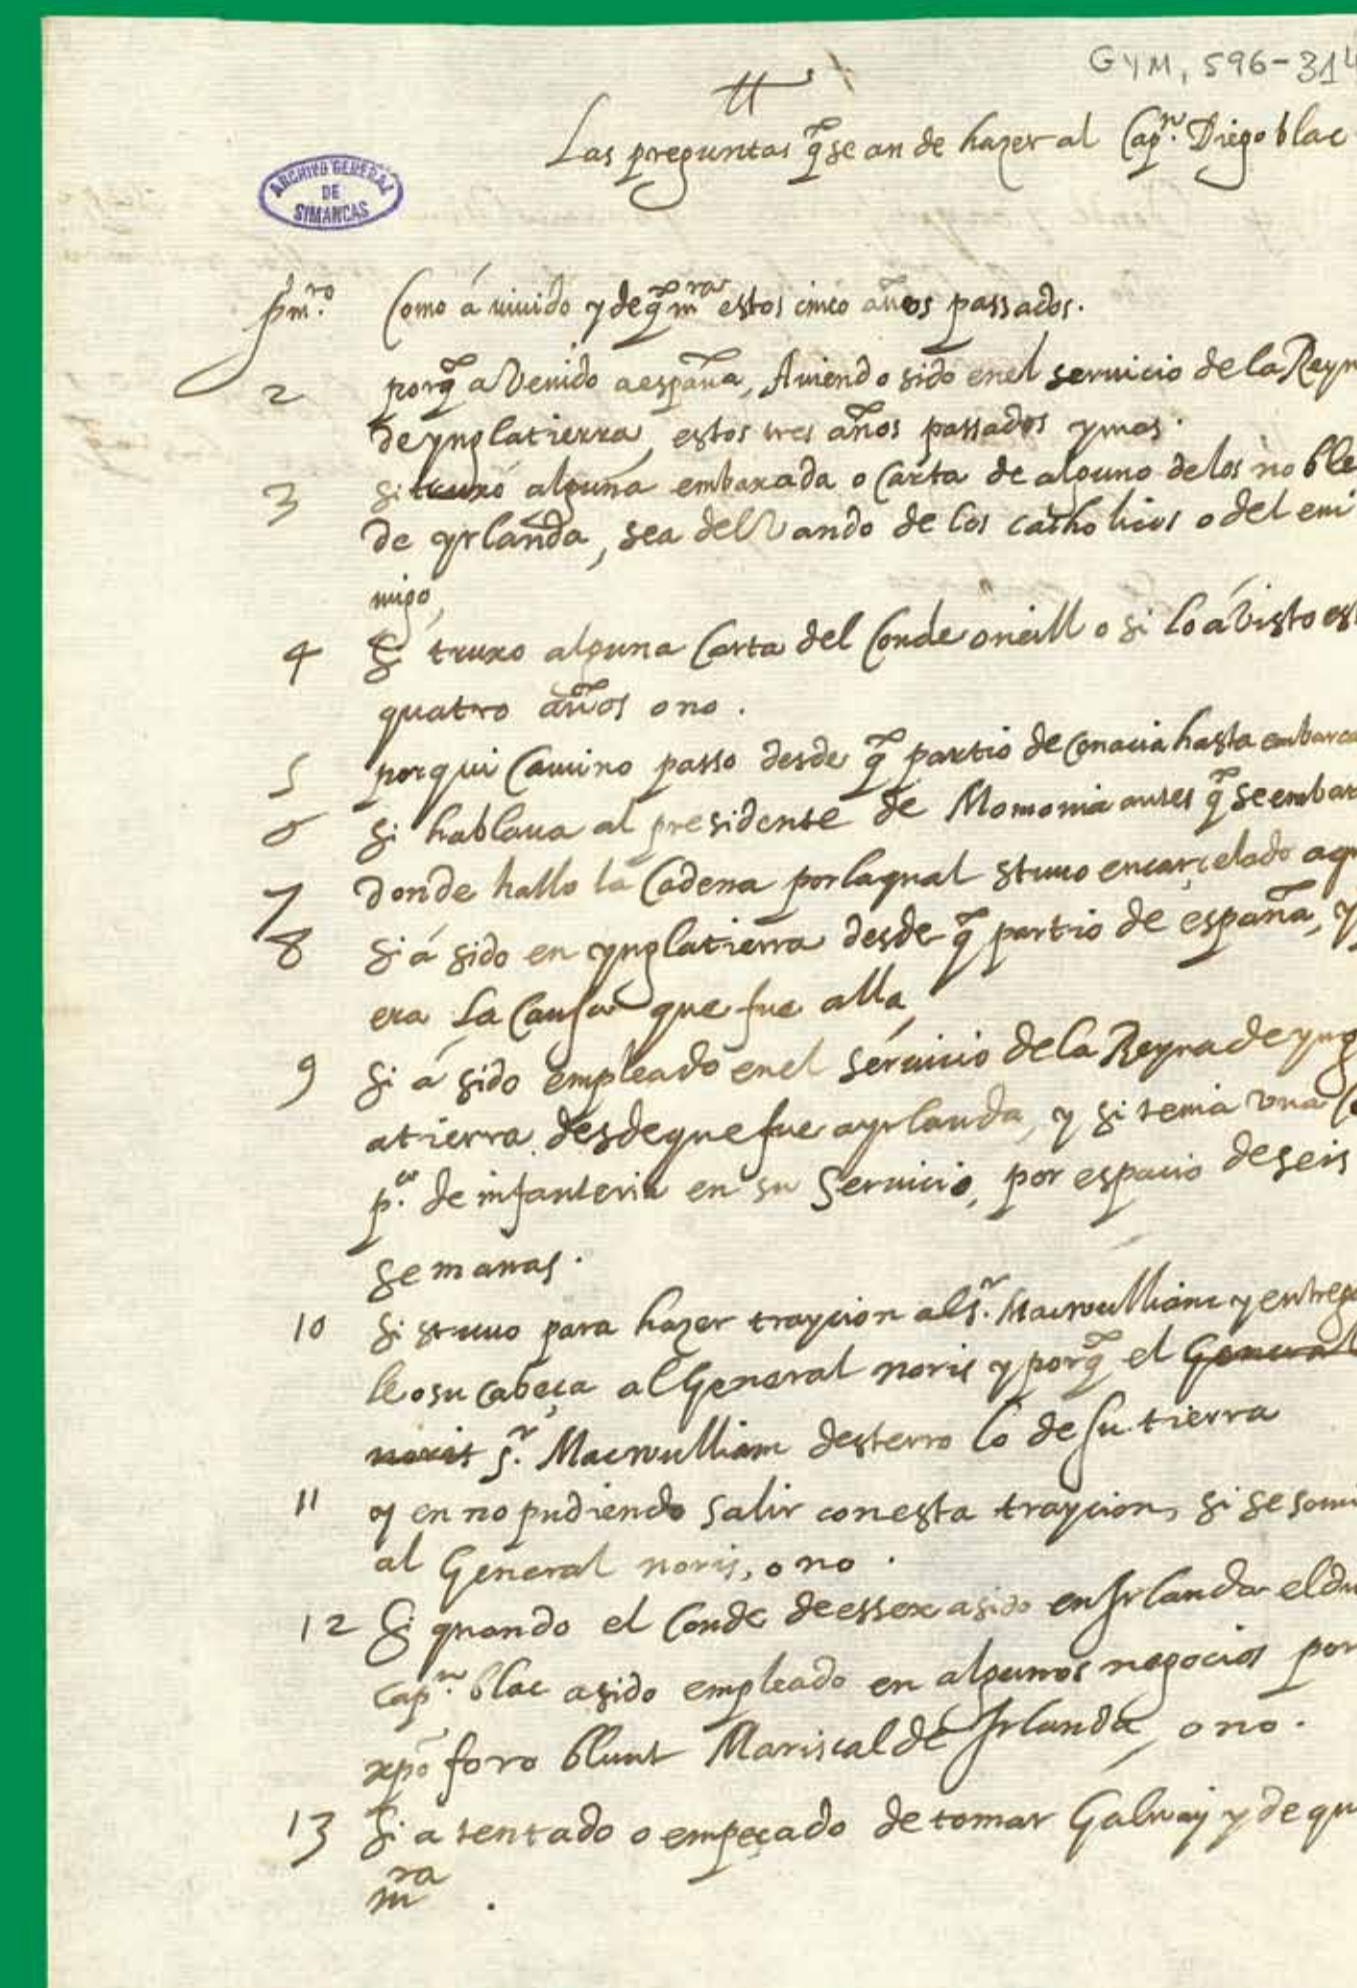 GYM, 596-314
Las preguntas q̃ se an de hazer al Capⁿ. Diego blac
ARCHIVO GENERAL
DE
SIMANCAS
pmʳᵒ. Como á viuido y de q̃ mʳᵃ estos cinco años passados.
2 porq̃ a Venido a españa, Auiendo sido en el seruicio de la Reyn
de ynglatierra, estos tres años passados y mas.
3 si truxo alguna embaxada o Carta de alguno de los noble
de yrlanda, sea del Vando de los catholicos o del eni
migo,
4 Si truxo alguna Carta del Conde oneill o si lo á Visto est
quatro años o no.
5 por qui Camino passo desde q̃ partio de Conacia hasta embarca
6 si hablaua al presidente de Momonia antes q̃ se embar
7 donde hallo la Cadena por la qual stuuo encarçelado aqu
8 Si á sido en ynglatierra desde q̃ partio de españa, y
era la Causa que fue alla,
9 Si á sido empleado en el séruicio de la Reyna de yngl
atierra desde que fue a yrlanda, y si tenia vna C
pᵃ. de infanteria en su Seruicio, por espacio de seis
semanas.
10 Si stuuo para hazer traycion al sʳ. Macwulliam y entrega
le o su Cabeça al General noris y porq̃ el General
noris sʳ. Macwulliam desterro lo de su tierra
11 y en no pudiendo Salir con esta traycion, si se somi
al General noris, o no.
12 Si quando el Conde de essex a sido en Irlanda el du
Capⁿ. blac a sido empleado en algunos negocios por
xpõforo blunt Mariscal de Irlanda, o no.
13 Si a tentado o empeçado de tomar Galway y de qu
mʳᵃ.